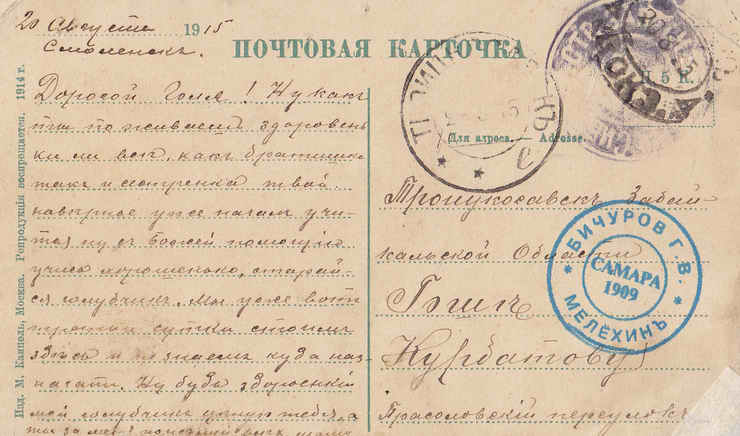 20 Августа 1915
Смоленскъ.
ПОЧТОВАЯ КАРТОЧКА
Изд. М. Кампель, Москва. Репродукція воспрещается. 1914 г.
Дорогой Голя! Ну какъ
ты поживаешь здоровень
ки ли всѣ, какъ братишка
такъ и сестренка твой
навѣрное уже началъ учи-
тся ну съ Божей помощью
учись хорошенько, старай-
ся голубчикъ. Мы уже вотъ
сутки стоимъ
здѣсь и не знаемъ куда наз-
начатъ. Ну будь здоровенькій
мой голубчикъ цѣлую тебя, а
ты за меня
Для адреса. — Adresse.
Троицкосавскъ Забай-
кальской Области
Гэшѣ
Курбатову
Прасоловскій переулокъ
БИЧУРОВ Г.В.
САМАРА
1909
МЕЛЁХИНЪ